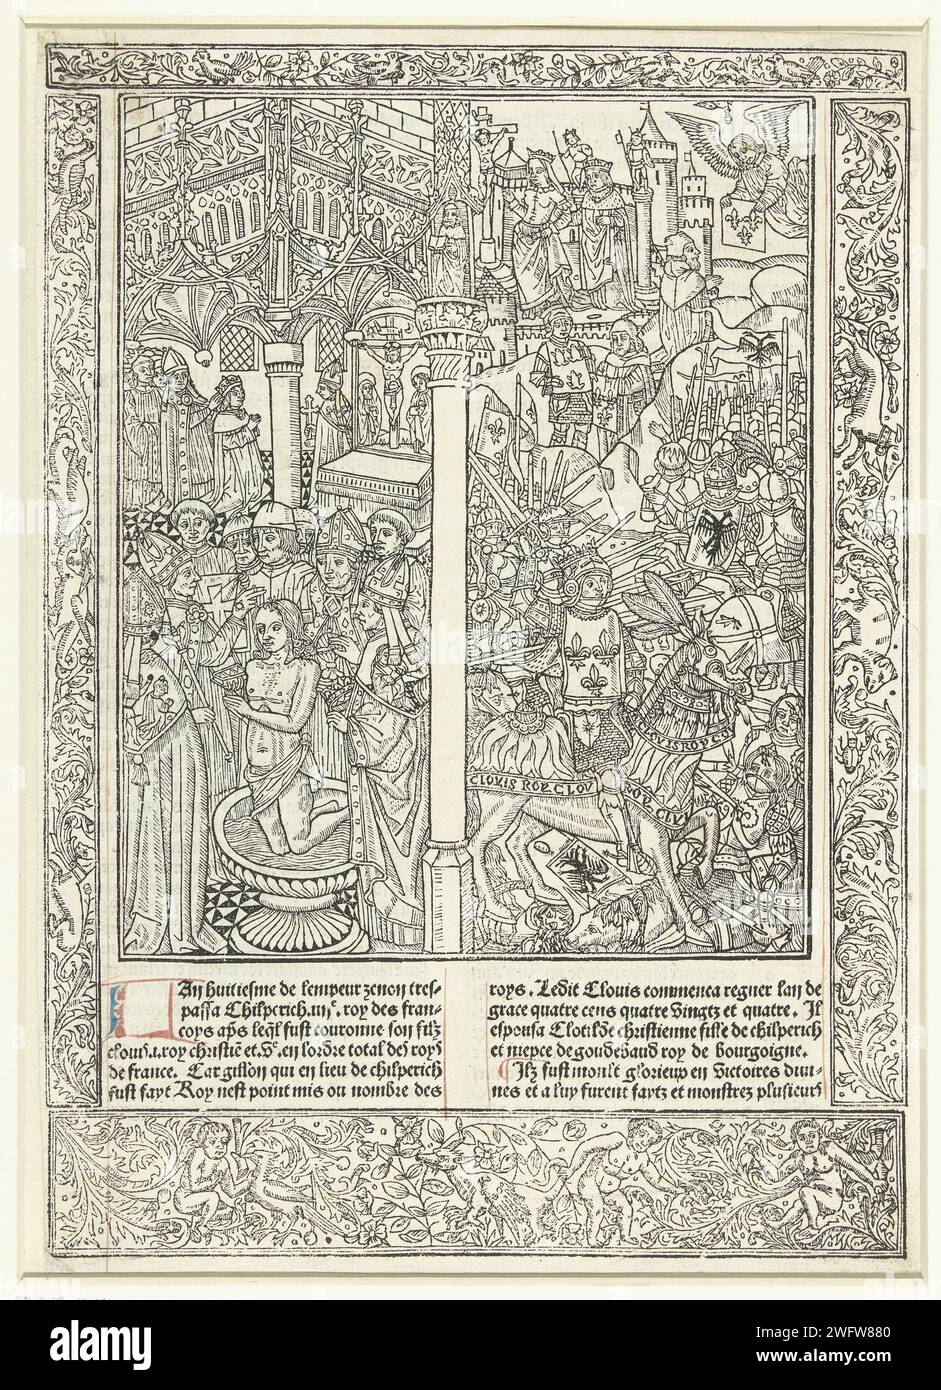 CLOVIS ROY. CLOV
CLOVIS ROY. CLO
ROY. CLV
An huitiesme de lempeur zenon tres-
passa Chilperich .iiij. roy des fran-
coys aps leql fust couronne son filz
clouis .v. roy christie et en lordre total des roys
de france. Car gillon qui en lieu de chilperich
fust fayt Roy nest point mis ou nombre des
roys. Ledit Clouis commenca regner lan de
grace quatre cens quatre vingtz et quatre. Il
espousa Clotilde christienne fille de chilperich
et niepce de goudebaud roy de bourgoigne.
Ilz fust moult glorieup en victoires diui-
nes et a luy furent faytz et monstrez plusieurs
alamy
Image ID: 2WFW880
www.alamy.com